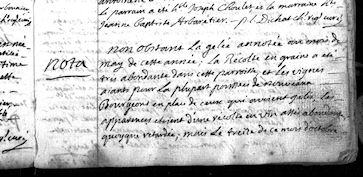 le parrain a été Joseph et la marraine
Jeanne Baptiste
nota
non obstant la gelée annotée au mois de
may de cette année, la Recolte en grains a été
tres abondante dans cette parroisse, et les vignes
aiants pour la plupart poussées de nouveaux
Bourgeons en place de ceux qui avoient gelés, les
apparences etoient d'une recolte en vin asses abondante
quoyque retardée; mais le treize de ce mois d'octobre